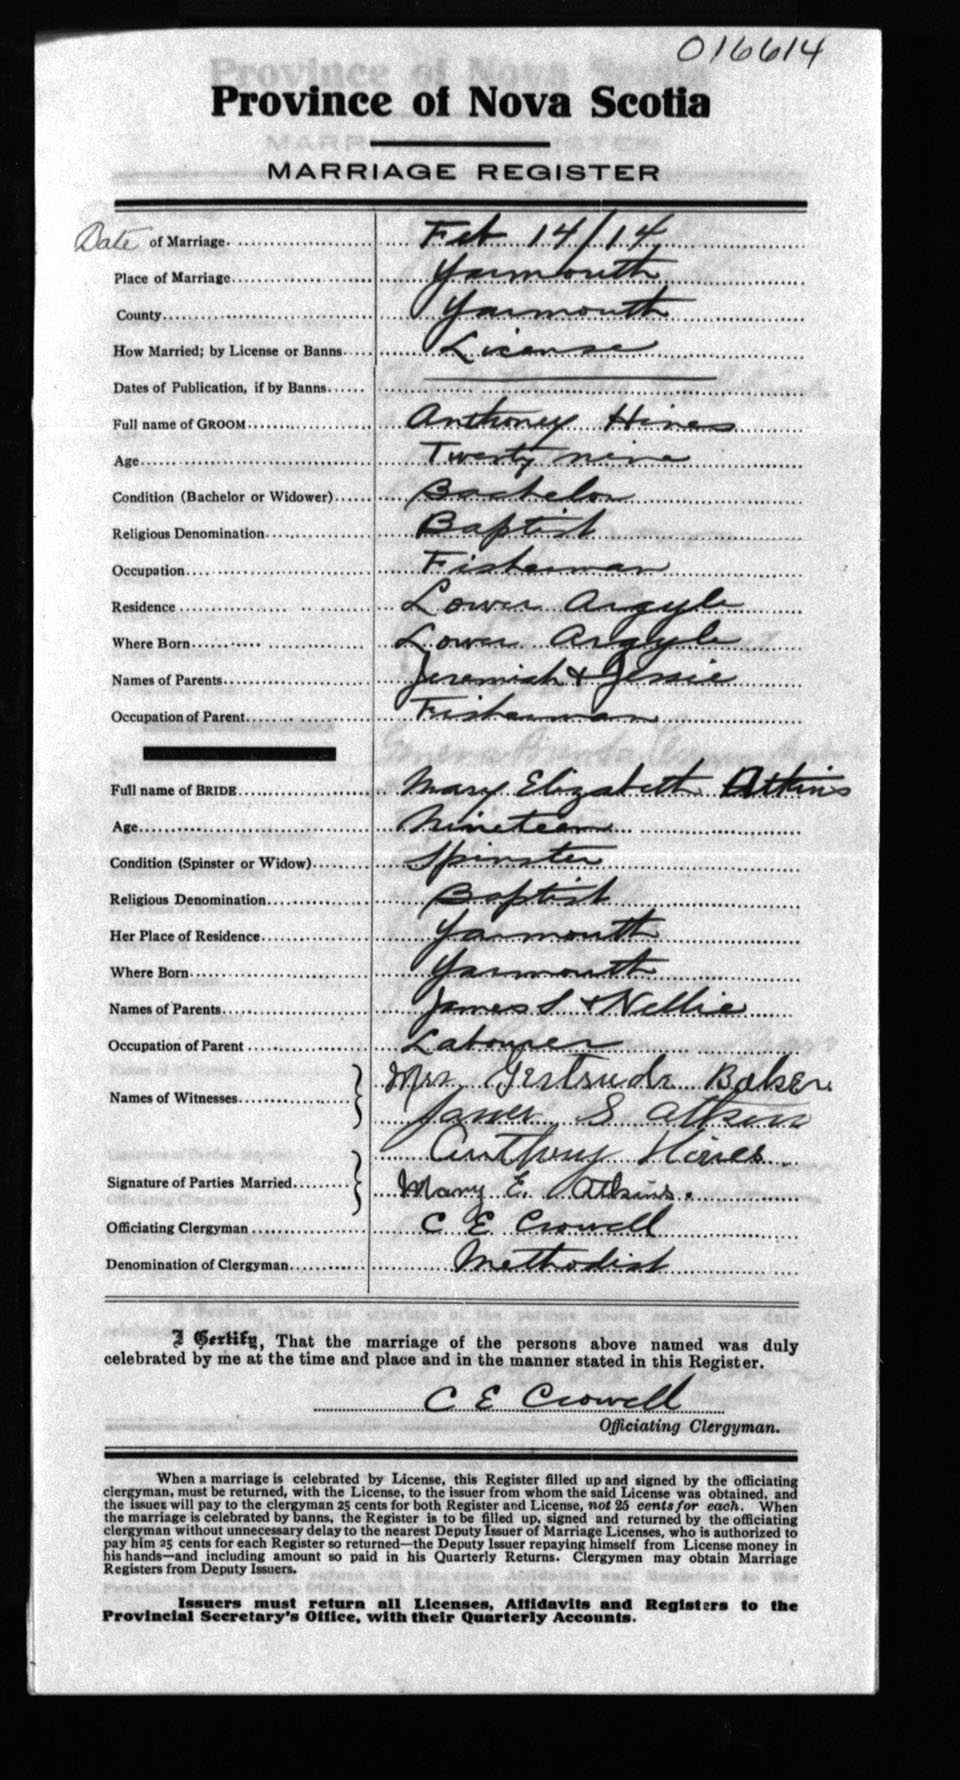 016614
Province of Nova Scotia
MARRIAGE REGISTER
Date of Marriage. Feb 14/14
Place of Marriage Yarmouth
County Yarmouth
How Married; by License or Banns License
Dates of Publication, if by Banns
Full name of GROOM Anthoney Hines
Age Twenty nine
Condition (Bachelor or Widower) Bachelor
Religious Denomination Baptist
Occupation Fisherman
Residence Lower Argyle
Where Born Lower Argyle
Names of Parents Jeremiah & Jessie
Occupation of Parent Fisherman
Full name of BRIDE Mary Elizabeth Atkins
Age Nineteen
Condition (Spinster or Widow) Spinster
Religious Denomination Baptist
Her Place of Residence Yarmouth
Where Born Yarmouth
Names of Parents James S & Nellie
Occupation of Parent Labourer
Mrs Gertrude Baker
Names of Witnesses
James S Atkins
Anthony Hines
Signature of Parties Married
Mary E. Atkins.
Officiating Clergyman C E Crowell
Denomination of Clergyman Methodist
I Certify, That the marriage of the persons above named was duly
celebrated by me at the time and place and in the manner stated in this Register.
C E Crowell
Officiating Clergyman.
When a marriage is celebrated by License, this Register filled up and signed by the officiating
clergyman, must be returned, with the License, to the issuer from whom the said License was obtained, and
the issuer will pay to the clergyman 25 cents for both Register and License, not 25 cents for each. When
the marriage is celebrated by banns, the Register is to be filled up, signed and returned by the officiating
clergyman without unnecessary delay to the nearest Deputy Issuer of Marriage Licenses, who is authorized to
pay him 25 cents for each Register so returned—the Deputy Issuer repaying himself from License money in
his hands—and including amount so paid in his Quarterly Returns. Clergymen may obtain Marriage
Registers from Deputy Issuers.
Issuers must return all Licenses, Affidavits and Registers to the
Provincial Secretary's Office, with their Quarterly Accounts.